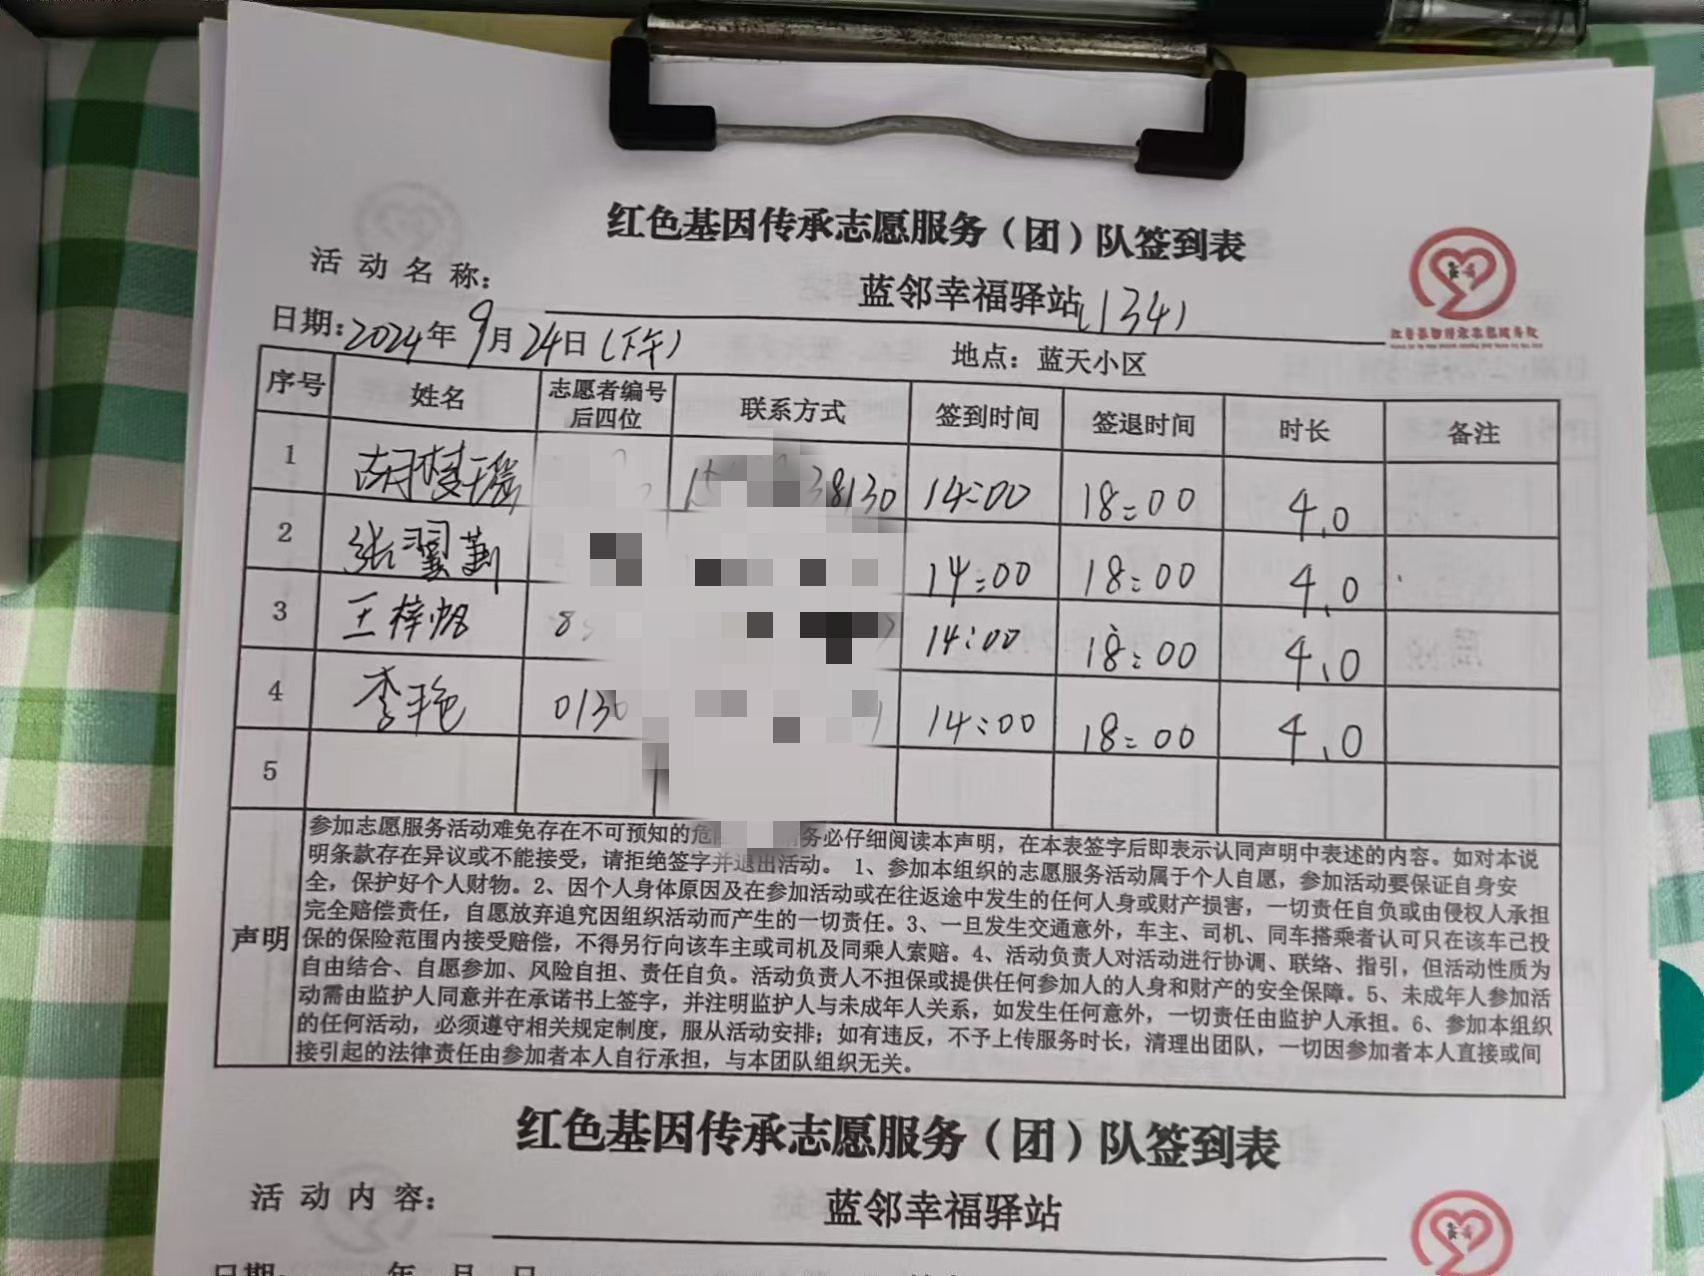 红色基因传承志愿服务（团）队签到表
活动名称： 蓝邻幸福驿站（134）
日期：2024年9月24日（下午） 地点：蓝天小区
序号 姓名 志愿者编号后四位 联系方式 签到时间 签退时间 时长 备注
1 胡梦瑶 38130 14:00 18:00 4.0
2 张翼 14:00 18:00 4.0
3 王梓帆 8 14:00 18:00 4.0
4 李艳 0130 14:00 18:00 4.0
5
声明
参加志愿服务活动难免存在不可预知的危 务必仔细阅读本声明，在本表签字后即表示认同声明中表述的内容。如对本说
明条款存在异议或不能接受，请拒绝签字并退出活动。 1、参加本组织的志愿服务活动属于个人自愿，参加活动要保证自身安
全，保护好个人财物。2、因个人身体原因及在参加活动或在往返途中发生的任何人身或财产损害，一切责任自负或由侵权人承担
完全赔偿责任，自愿放弃追究因组织活动而产生的一切责任。3、一旦发生交通意外，车主、司机、同车搭乘者认可只在该车已投
保的保险范围内接受赔偿，不得另行向该车主或司机及同乘人索赔。4、活动负责人对活动进行协调、联络、指引，但活动性质为
自由结合、自愿参加、风险自担、责任自负。活动负责人不担保或提供任何参加人的人身和财产的安全保障。5、未成年人参加活
动需由监护人同意并在承诺书上签字，并注明监护人与未成年人关系，如发生任何意外，一切责任由监护人承担。6、参加本组织
的任何活动，必须遵守相关规定制度，服从活动安排；如有违反，不予上传服务时长，清理出团队，一切因参加者本人直接或间
接引起的法律责任由参加者本人自行承担，与本团队组织无关。
红色基因传承志愿服务（团）队签到表
活动内容： 蓝邻幸福驿站
日期： 年 月 日